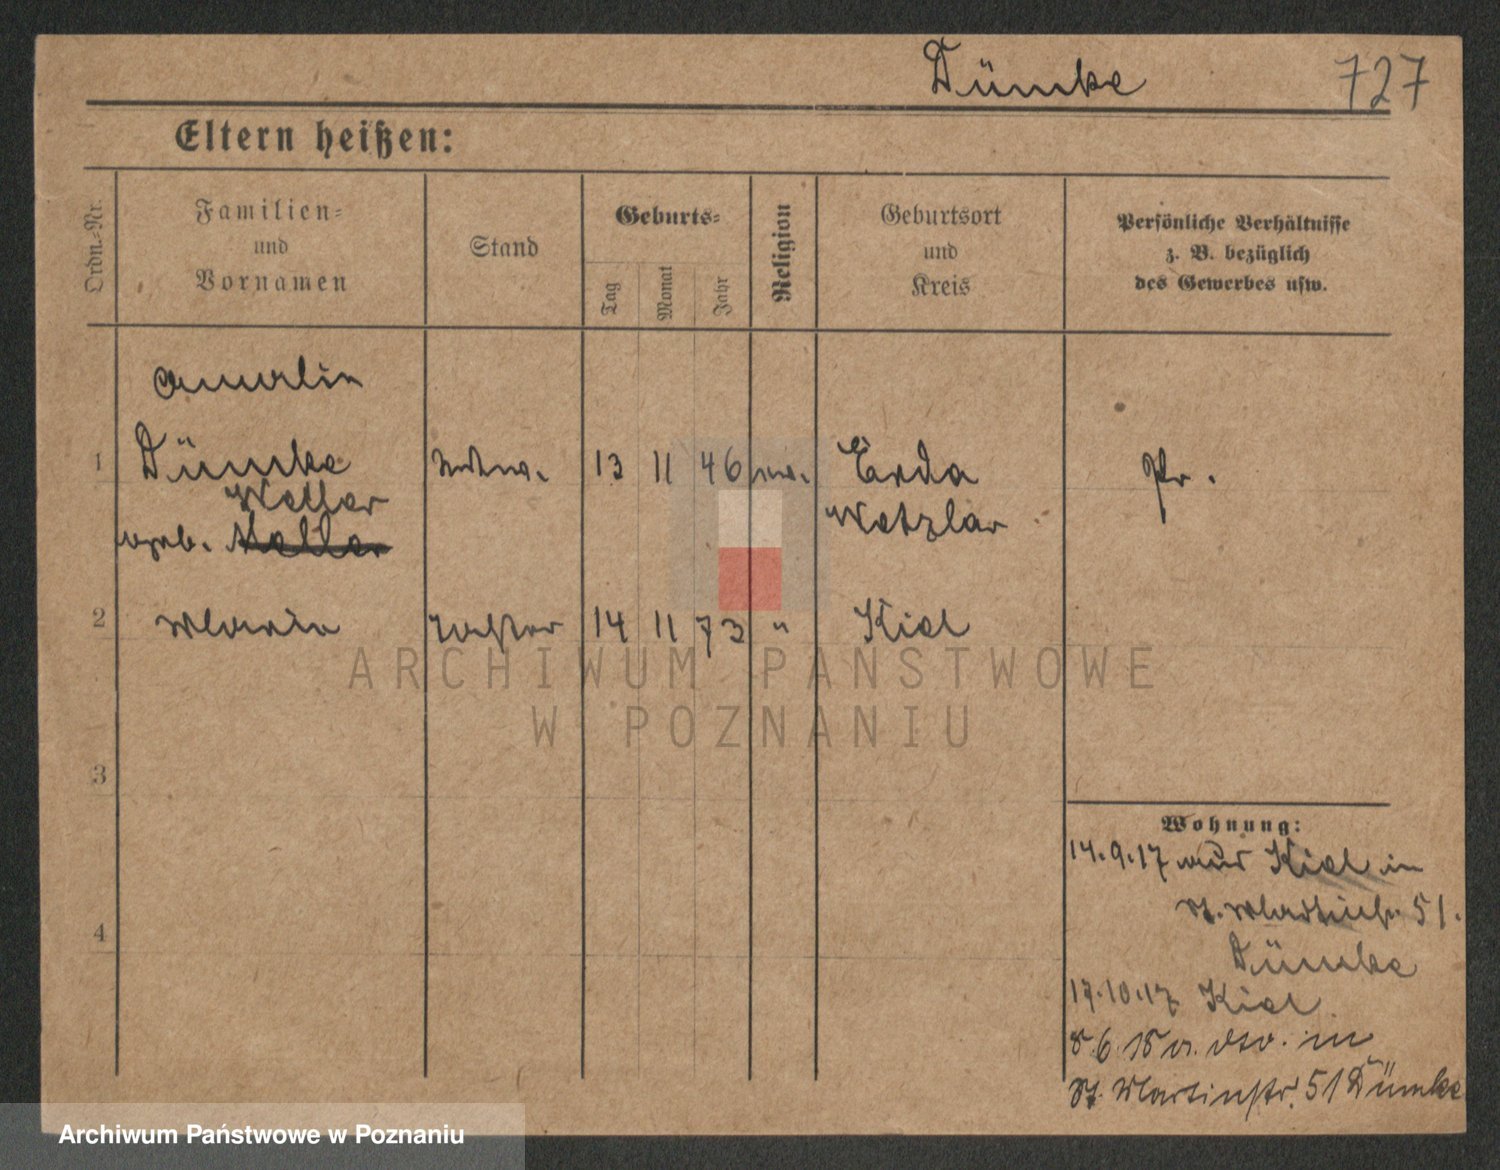 Dümke 727
Eltern heißen:
Ordn.-Nr.
Familien-
und
Vornamen
Stand
Geburts-
Tag
Monat
Jahr
Religion
Geburtsort
und
Kreis
Persönliche Verhältnisse
z. B. bezüglich
des Gewerbes usw.
Amalie
1 Dümke Witwe. 13 11 46 ev. Erda Pr.
Weller Wetzlar
geb.
2 Marie Tochter 14 11 73 " Kiel
3
4
Wohnung:
14.9.17 aus Kiel in
St. Martinstr. 51.
Dümke
17.10.17 Kiel
8.6.18 v. dso. in
St. Martinstr. 51 Dümke
ARCHIWUM PAŃSTWOWE
W POZNANIU
Archiwum Państwowe w Poznaniu